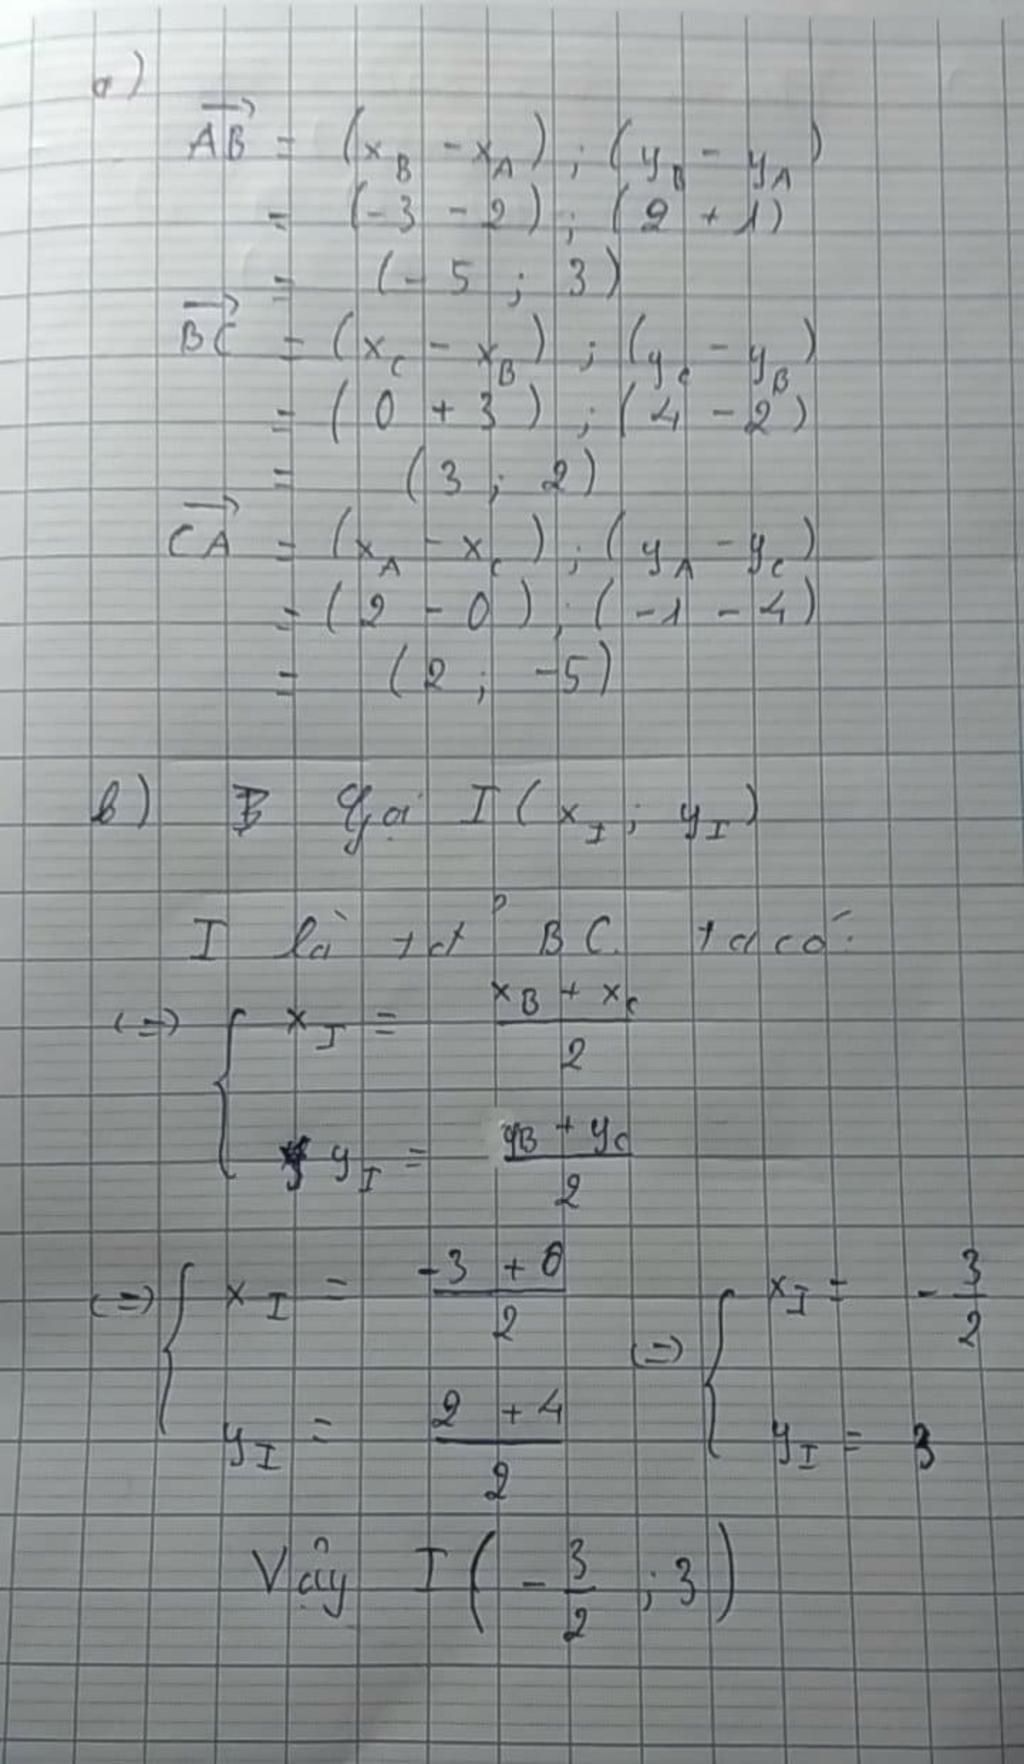 a)
AB→ = (x_B - x_A) ; (y_B - y_A)
= (-3 - 2) ; (2 + 1)
= (-5 ; 3)
BC→ = (x_C - x_B) ; (y_C - y_B)
= (0 + 3) ; (4 - 2)
= (3 ; 2)
CA→ = (x_A - x_C) ; (y_A - y_C)
= (2 - 0) ; (-1 - 4)
= (2 ; -5)
b) Gọi I (x_I ; y_I)
I là tđ BC. ta có:
(=) { x_I = (x_B + x_C)/2
y_I = (y_B + y_C)/2
(=) { x_I = (-3 + 0)/2 (=) { x_I = -3/2
y_I = (2 + 4)/2 y_I = 3
Vậy I (-3/2 ; 3)